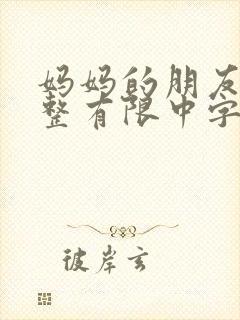 妈妈的朋友
整有限中字
彼岸玄